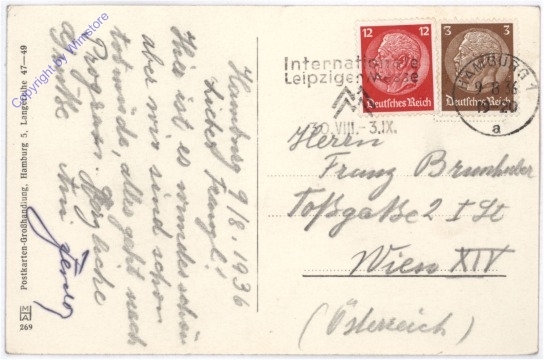 Hamburg 9/8. 1936
Lieber Franzl!
Hier ist es wunderschön
aber wir sind schon
todmüde, alles geht nach
Program. Herzliche
Grüße
Postkarten-Großhandlung, Hamburg 5, Langereihe 47-49
269
Copyright by Winstore
12 12
Deutsches Reich
3 3
Deutsches Reich
Internationale
Leipziger Messe
30.VIII.-3.IX.
HAMBURG 1
9.8.36
a
Herrn
Franz Brunhuber
Toßgaße 2 I St
Wien XIV
(Österreich)